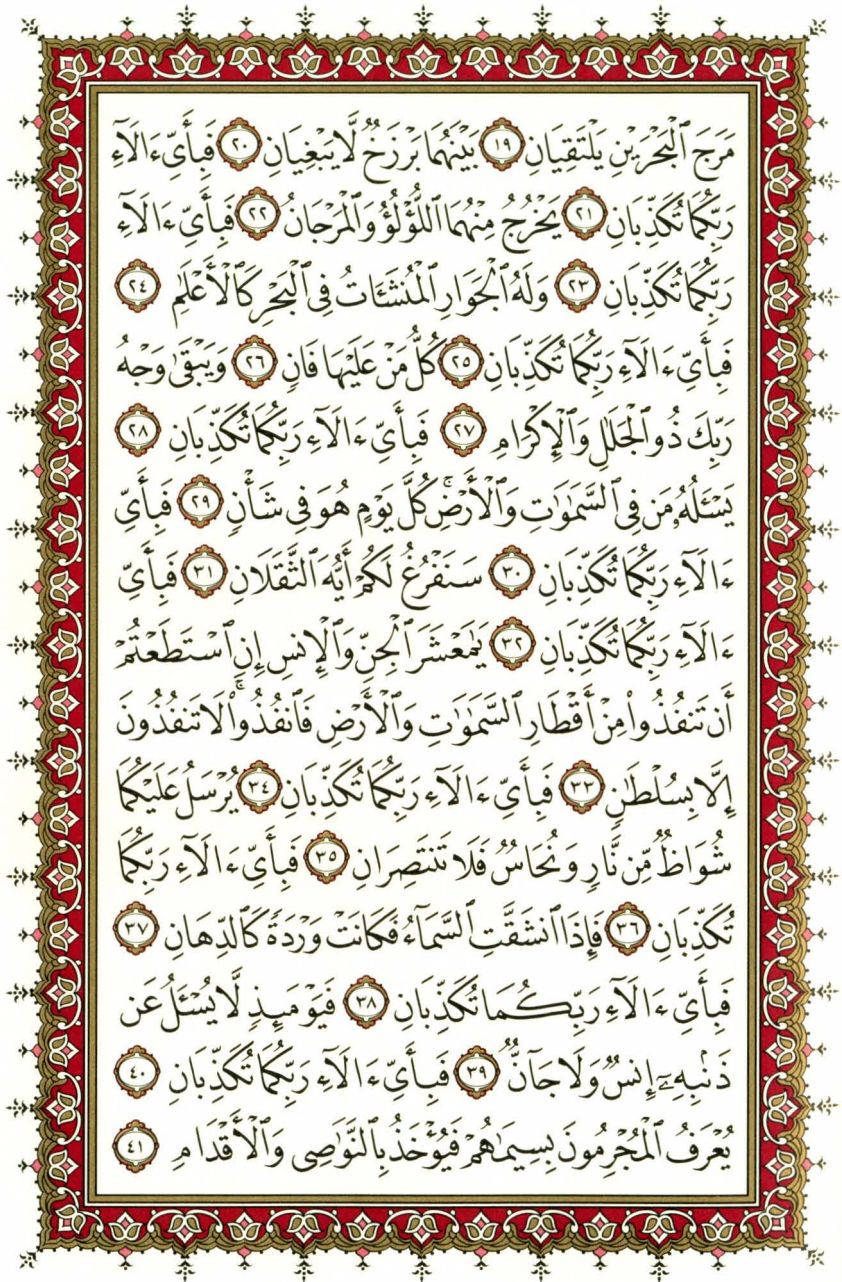 مَرَجَ ٱلْبَحْرَيْنِ يَلْتَقِيَانِ ١٩ بَيْنَهُمَا بَرْزَخٌ لَّا يَبْغِيَانِ ٢٠ فَبِأَىِّ ءَالَآءِ
رَبِّكُمَا تُكَذِّبَانِ ٢١ يَخْرُجُ مِنْهُمَا ٱللُّؤْلُؤُ وَٱلْمَرْجَانُ ٢٢ فَبِأَىِّ ءَالَآءِ
رَبِّكُمَا تُكَذِّبَانِ ٢٣ وَلَهُ ٱلْجَوَارِ ٱلْمُنشَـَٔاتُ فِى ٱلْبَحْرِ كَٱلْأَعْلَٰمِ ٢٤
فَبِأَىِّ ءَالَآءِ رَبِّكُمَا تُكَذِّبَانِ ٢٥ كُلُّ مَنْ عَلَيْهَا فَانٍ ٢٦ وَيَبْقَىٰ وَجْهُ
رَبِّكَ ذُو ٱلْجَلَٰلِ وَٱلْإِكْرَامِ ٢٧ فَبِأَىِّ ءَالَآءِ رَبِّكُمَا تُكَذِّبَانِ ٢٨
يَسْـَٔلُهُۥ مَن فِى ٱلسَّمَٰوَٰتِ وَٱلْأَرْضِ ۚ كُلَّ يَوْمٍ هُوَ فِى شَأْنٍ ٢٩ فَبِأَىِّ
ءَالَآءِ رَبِّكُمَا تُكَذِّبَانِ ٣٠ سَنَفْرُغُ لَكُمْ أَيُّهَ ٱلثَّقَلَانِ ٣١ فَبِأَىِّ
ءَالَآءِ رَبِّكُمَا تُكَذِّبَانِ ٣٢ يَٰمَعْشَرَ ٱلْجِنِّ وَٱلْإِنسِ إِنِ ٱسْتَطَعْتُمْ
أَن تَنفُذُوا۟ مِنْ أَقْطَارِ ٱلسَّمَٰوَٰتِ وَٱلْأَرْضِ فَٱنفُذُوا۟ ۚ لَا تَنفُذُونَ
إِلَّا بِسُلْطَٰنٍ ٣٣ فَبِأَىِّ ءَالَآءِ رَبِّكُمَا تُكَذِّبَانِ ٣٤ يُرْسَلُ عَلَيْكُمَا
شُوَاظٌ مِّن نَّارٍ وَنُحَاسٌ فَلَا تَنتَصِرَانِ ٣٥ فَبِأَىِّ ءَالَآءِ رَبِّكُمَا
تُكَذِّبَانِ ٣٦ فَإِذَا ٱنشَقَّتِ ٱلسَّمَآءُ فَكَانَتْ وَرْدَةً كَٱلدِّهَانِ ٣٧
فَبِأَىِّ ءَالَآءِ رَبِّكُمَا تُكَذِّبَانِ ٣٨ فَيَوْمَئِذٍ لَّا يُسْـَٔلُ عَن
ذَنۢبِهِۦٓ إِنسٌ وَلَا جَآنٌّ ٣٩ فَبِأَىِّ ءَالَآءِ رَبِّكُمَا تُكَذِّبَانِ ٤٠
يُعْرَفُ ٱلْمُجْرِمُونَ بِسِيمَٰهُمْ فَيُؤْخَذُ بِٱلنَّوَٰصِى وَٱلْأَقْدَامِ ٤١